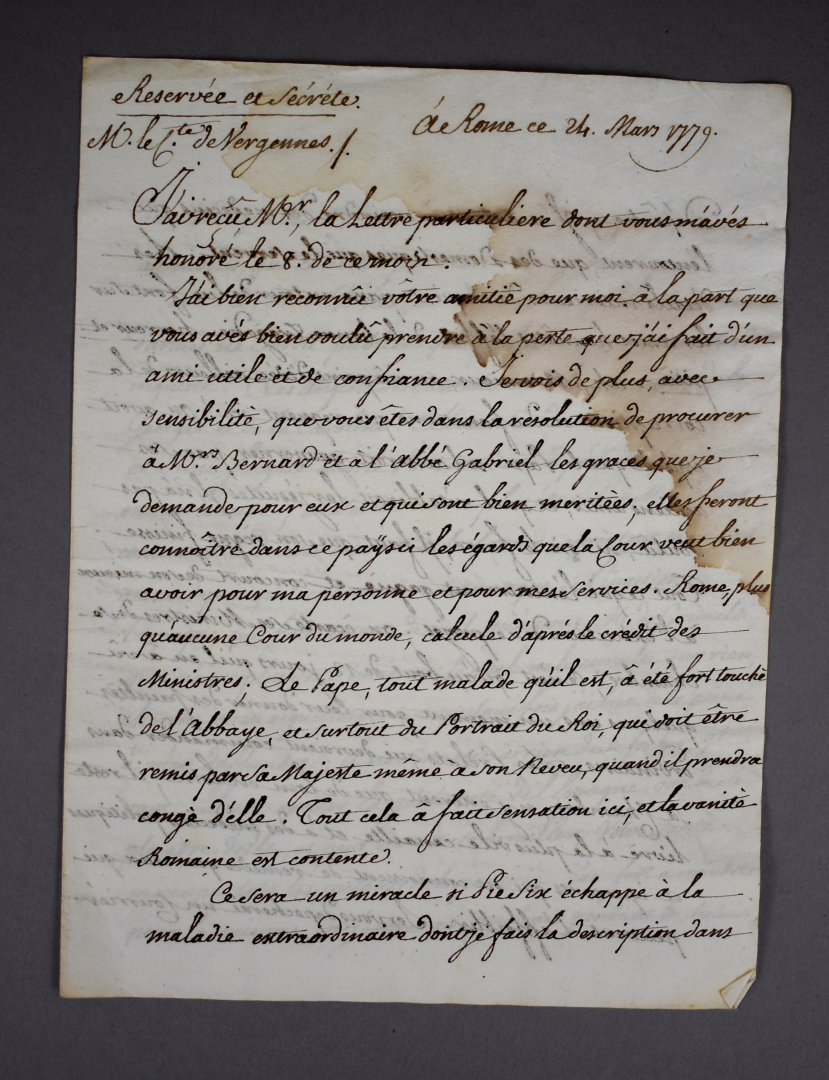 Reservée et Sécréte.
M. le C.te de Vergennes./.
á Rome ce 24. Mars 1779.
J'ai reçû M.r, la Lettre particuliere dont vous m'avés
honoré le 8. de ce mois.
J'ai bien reconnû vôtre amitié pour moi à la part que
vous avés bien voulû prendre à la perte que j'ai fait d'un
ami utile et de confiance. Je vois de plus, avec
sensibilité, que vous êtes dans la résolution de procurer
à M.rs Bernard et a l'Abbé Gabriel les graces que je
demande pour eux et qui sont bien meritées; elles feront
connoître dans ce païs ci les égards que la Cour veut bien
avoir pour ma personne et pour mes Services. Rome, plus
qu'aucune Cour du monde, calcule d'aprés le crédit des
Ministres; Le Pape, tout malade qu'il est, â été fort touché
de l'Abbaye, et surtout du Portrait du Roi, qui doit être
remis par Sa Majeste même à son Neveu, quand il prendra
congé d'elle. Tout cela â fait sensation ici, et la vanité
Romaine est contente.
Ce sera un miracle si Pie Six échappe à la
maladie extraordinaire dont je fais la description dans